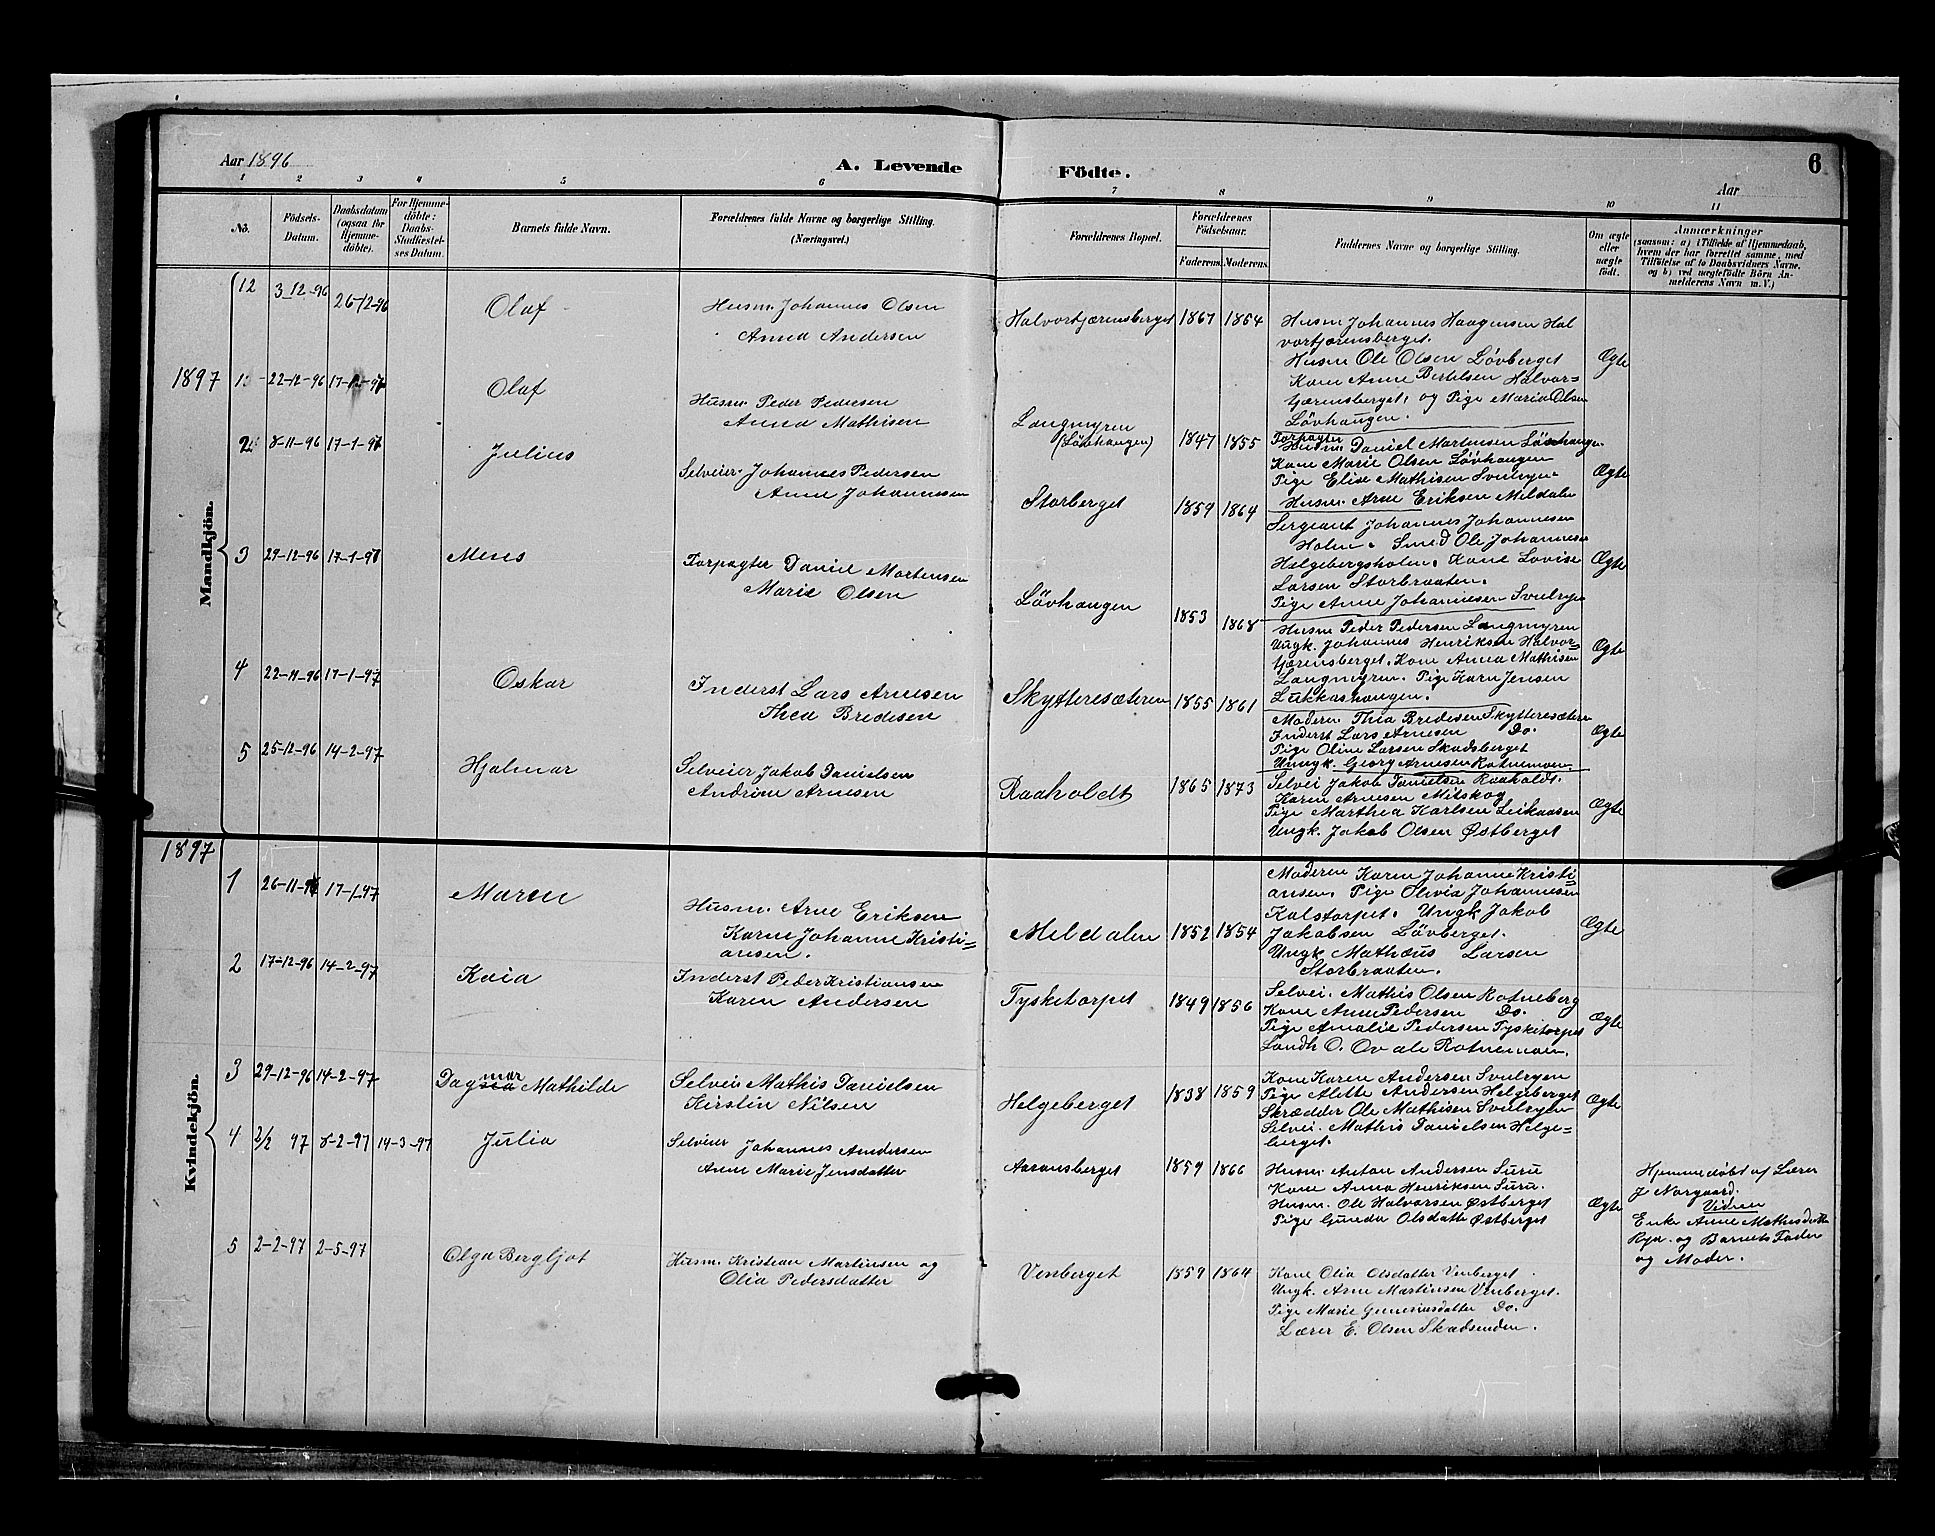 Aar 1896
A. Levende
Födte.
Aar
6
1 2 3 4 5 6 7 8 9 10 11
No.
Födsels-
Datum.
Daabsdatum
(ogsaa for
Hjemme-
döbte).
For Hjemme-
döbte:
Daabs-
Stadfæstel-
ses Datum.
Barnets fulde Navn.
Forældrenes fulde Navne og borgerlige Stilling.
(Næringsvei.)
Forældrenes Bopæl.
Forældrenes
Födselsaar.
Faderens. Moderens.
Faddernes Navne og borgerlige Stilling.
Om ægte
eller
uægte
födt.
Anmærkninger
(saasom: a) i Tilfælde af Hjemmedaab,
hvem der har forrettet samme, med
Tilföielse af to Daabsvidners Navne,
og b) ved uægtefödte Börn An-
melderens Navn m. V.)
Mandkjön.
12 3-12-96 26-12-96 Olaf
Husm. Johannes Olsen
Anna Andersen
Halvortjærensberget 1867 1864
Husm Johannes Haagensen Hal
vortjærensberget.
Husm Ole Olsen Lövberget
Kone Anne Bertilsen Halvor=
tjærensberget, og Pige Maria Olsen
Lövhaugen.
Ægte
1897
22-12-96 17-1-97 Olaf
Husm. Peder Pedersen
Anna Mathisen
Langmyren
(Lövhaugen)
1847 1855
Forpagter
Husm. Daniel Martensen Lövhaugen.
Kone Marie Olsen Lövhaugen
Pige Elise Mathisen Svulryen
Husm. Arne Eriksen Mildalen
Ægte
2 8-11-96 17-1-97 Julius
Selveier Johannes Pedersen
Anne Johannesen
Storberget 1859 1864
Sergeant Johannes Johannesen
Holm. Smed Ole Johannesen
Helgebergsholm. Kone Lovise
Larsen Storbraaten.
Pige Anne Johannesen Svulryen
Ægte
3 29-12-96 17-1-97 Mens
Forpagter Daniel Mortensen
Marie Olsen
Lövhaugen 1853 1868
Husm Peder Pedersen Langmyren
Ungk. Johannes Henriksen Halvor=
tjærensberget. Kone Anna Mathisen
Langmyren. Pige Karn Jensen
Lukkashaugen.
Ægte
4 22-11-96 17-1-97 Oskar
Inderst Lars Arnesen
Thea Bredesen
Skytteresæteren 1855 1861
Modern Thia Bredesen Skytteresæteren
Inderst Lars Arnesen Do.
Pige Oline Larsen Skadsberget
Ungk. Georg Arnesen Rotnemoen
Ægte
5 25-12-96 14-2-97 Hjalmar
Selveier Jakob Danielsen
Andrine Arnesen
Raaholdt 1865 1873
Selvei Jakob Danielsen Raaholdt.
Karen Arnesen Mitskog
Pige Marthea Karlsen Leikaasen
Ungk. Jakob Olsen Østberget
Ægte
1897
Kvindekjön.
1 26-11-96 17-1-97 Maren
Husm. Arne Eriksen
Karen Johanne Kristi=
ansen.
Mildalen 1852 1854
Moderen Karen Johanne Kristi=
ansen. Pige Olivia Johannesen
Kalstorpet. Ungk Jakob
Jakobsen Lövberget.
Ungk Mathæus Larsen
Storbraaten.
Ægte
2 17-12-96 14-2-97 Kaia
Inderst Peder Kristiansen
Karen Andersen
Tysketorpet 1849 1856
Selvei. Mathis Olsen Rotneberg
Kone Anne Pedersen Do.
Pige Amalie Pedersen Tysketorpet
Landh O. Ovale Rotnemoen.
Ægte
3 29-12-96 14-2-97 Dagmar Mathilde
Selveier Mathis Danielsen
Kirstin Nilsen
Helgeberget 1838 1859
Kone Karen Andersen Svulryen
Pige Alette Andersen Helgeberget
Skrædder Ole Mathisen Svulryen
Selvei. Mathis Danielsen Helge=
berget.
Ægte
4 2/2 97 8-2-97 14-3-97 Julia
Selveier Johannes Andersen
Anne Marie Jensdatter
Aaransberget 1859 1866
Husm. Anton Andersen Suru
Kone Anna Henriksen Suru.
Husm. Ole Halvorsen Østberget
Pige Gunda Olsdatter Østberget
Ægte
Hjemmedöbt af Lærer
J Norgaard.
Vidner
Enke Anne Mathisdatter
Rya. og Barnets Fader
og Moder.
5 2-2-97 2-5-97 Olga Bergljot
Husm. Kristian Martinsen og
Olia Pedersdatter
Venberget 1859 1864
Kone Olia Olsdatter Venberget.
Ungk. Arne Martinsen Venberget.
Pige Marie Gunneriusdatter Do.
Lærer E. Olsen Skadsenden.